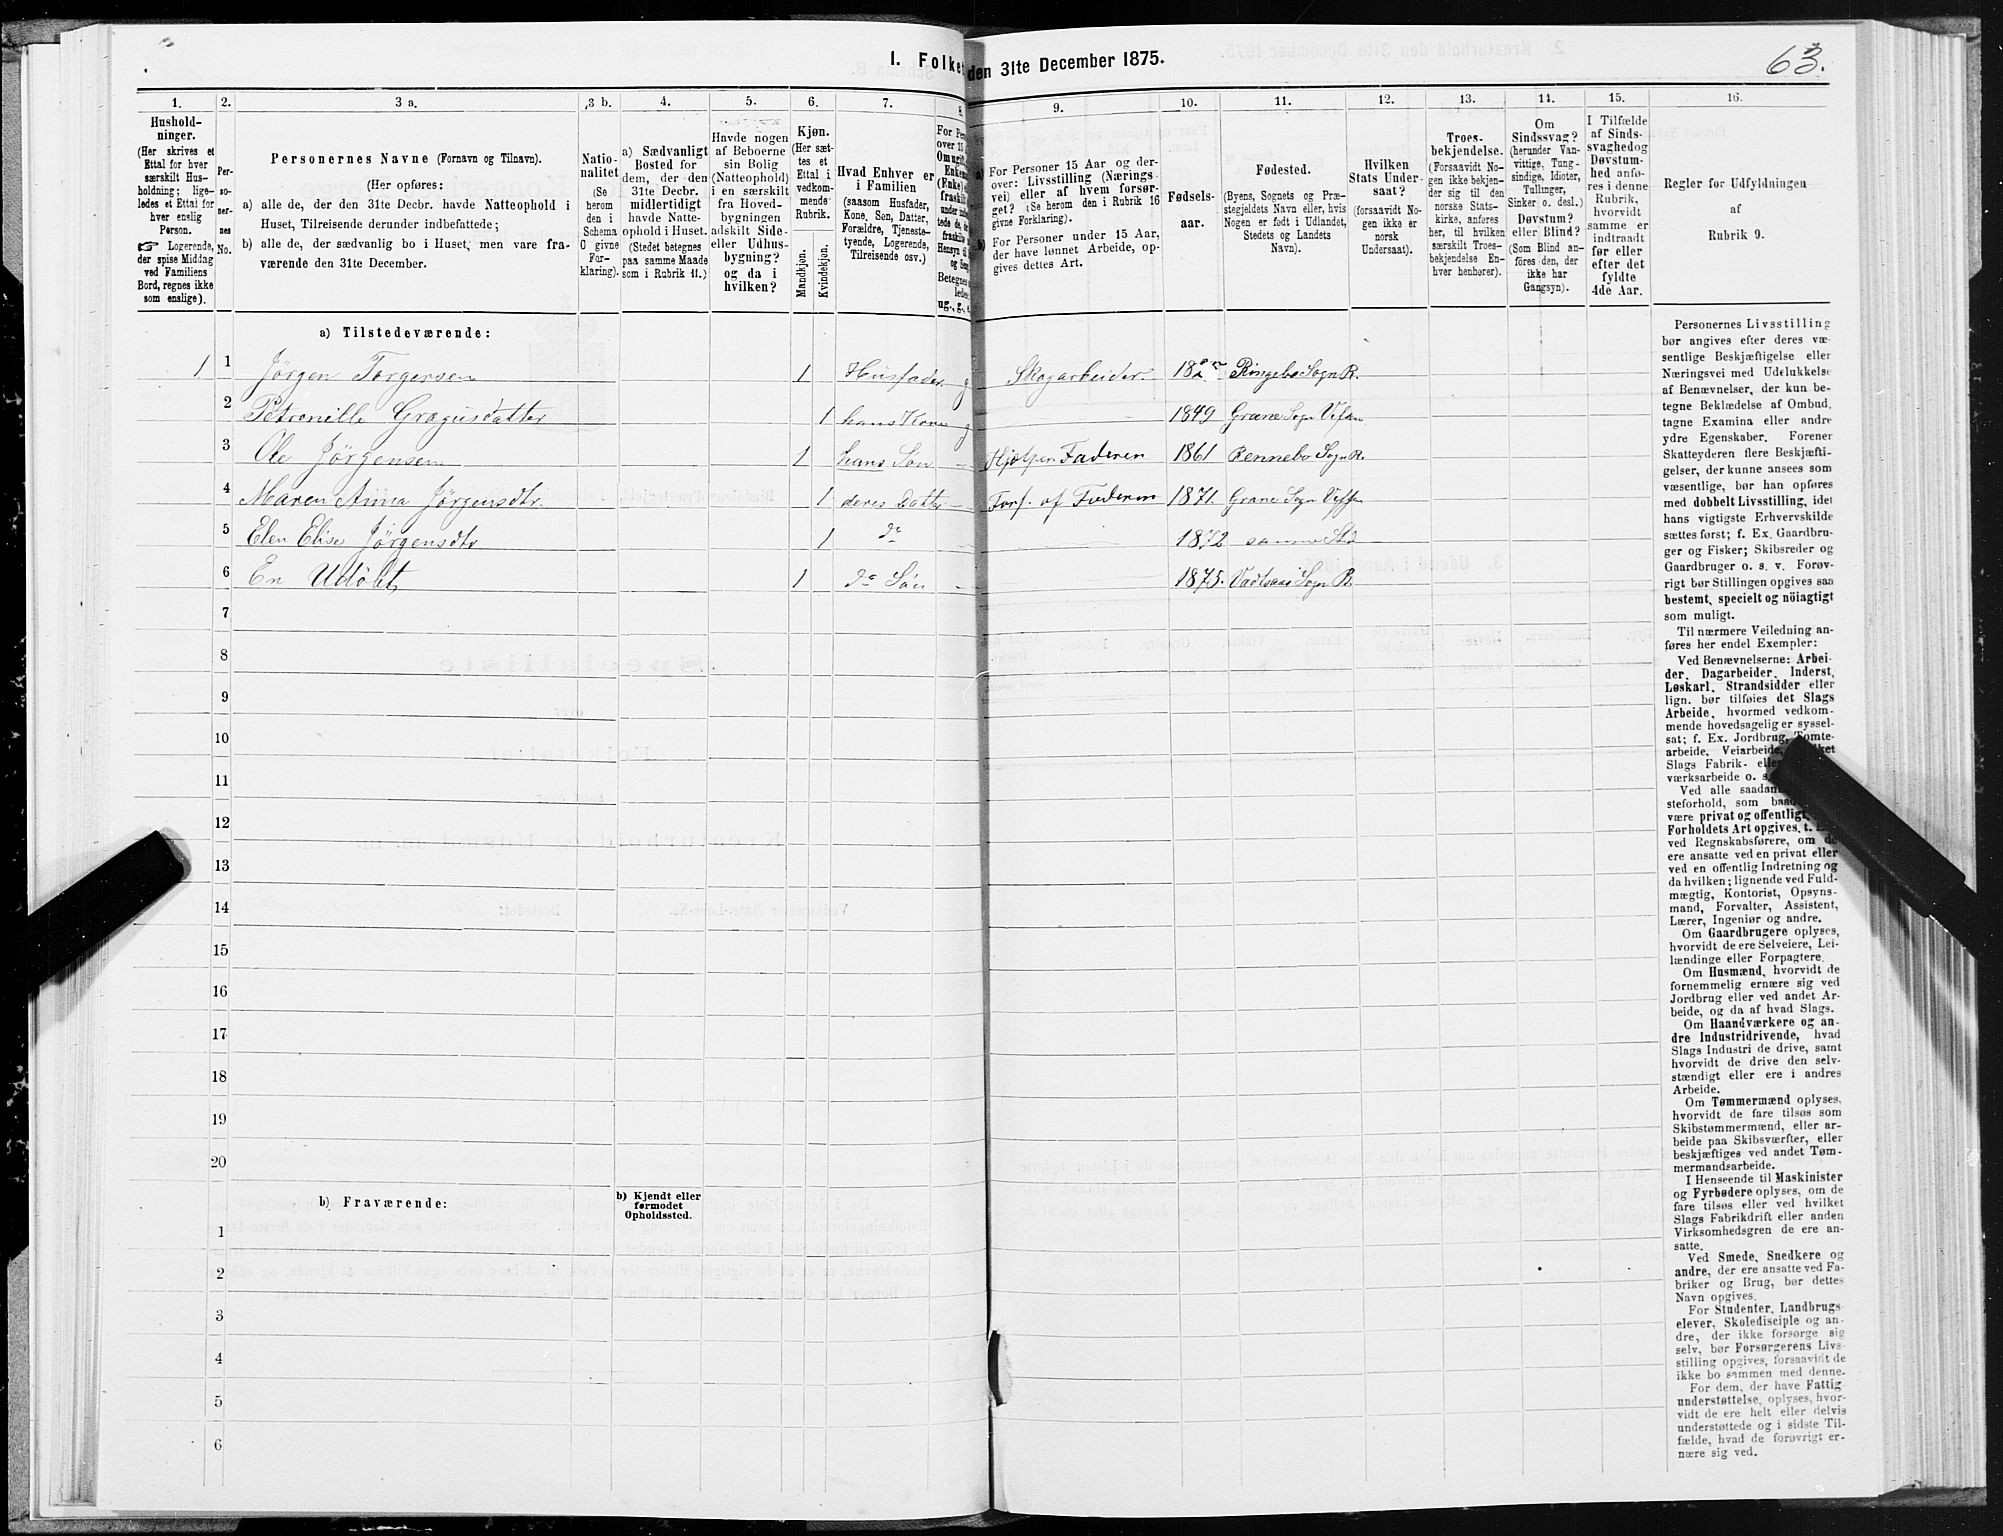 1. Folket
den 31te December 1875.
63.
1.
2.
3 a.
3 b.
4.
5.
6.
7.
8.
9.
10.
11.
12.
13.
14.
15.
16.
Hushold-
ninger.
(Her skrives et
Ettal for hver
særskilt Hus-
holdning; lige-
ledes et Ettal for
hver enslig
Person.
☞ Logerende,
der spise Middag
ved Familiens
Bord, regnes ikke
som enslige).
Per-
so-
ner-
nes
No.
Personernes Navne (Fornavn og Tilnavn).
(Her opføres:
a) alle de, der den 31te Decbr. havde Natteophold i
Huset, Tilreisende derunder indbefattede;
b) alle de, der sædvanlig bo i Huset, men vare fra-
værende den 31te December.
Natio-
nalitet
(Se
herom
den i
Schema
C givne
For-
klaring).
a) Sædvanligt
Bosted for
dem, der den
31te Decbr.
midlertidigt
havde Natte-
ophold i Huset.
(Stedet betegnes
paa samme Maade
som i Rubrik 11.)
Havde nogen
af Beboerne
sin Bolig
(Natteophold)
i en særskilt
fra Hoved-
bygningen
adskilt Side-
eller Udhus-
bygning?
og da i
hvilken?
Kjøn.
(Her sæt-
tes et
Ettal i
vedkom-
mende
Rubrik.
Mandkjøn.
Kvindekjøn.
Hvad Enhver er
i Familien
(saasom Husfader,
Kone, Søn, Datter,
Forældre, Tjeneste-
tyende, Logerende,
Tilreisende osv.)
a)
For Personer 15 Aar og der-
over: Livsstilling (Nærings-
vei) eller af hvem forsør-
get? (Se herom den i Rubrik 16
givne Forklaring).
b)
For Personer under 15 Aar,
der have lønnet Arbeide, op-
gives dettes Art.
Fødsels-
aar.
Fødested.
(Byens, Sognets og Præ-
stegjeldets Navn eller, hvis
Nogen er født i Udlandet,
Stedets og Landets
Navn).
Hvilken
Stats Under-
saat?
(forsaavidt No-
gen ikke er
norsk
Undersaat).
Troes-
bekjendelse.
(Forsaavidt No-
gen ikke bekjen-
der sig til den
norske Stats-
kirke, anføres
her, til hvilken
særskilt Troes-
bekjendelse En-
hver henhører).
Om
Sindssvag?
(herunder Van-
vittige, Tung-
sindige, Idioter,
Tullinger,
Sinker o. desl.)
Døvstum?
eller Blind?
(Som Blind an-
føres den, der
ikke har
Gangsyn).
I Tilfælde
af Sinds-
svaghed og
Døvstum-
hed anfø-
res i denne
Rubrik,
hvorvidt
samme er
indtraadt
før eller
efter det
fyldte
4de Aar.
Regler for Udfyldningen
af
Rubrik 9.
a) Tilstedeværende:
1 1 Jörgen Torgersen 1 Husfader g Skogarbeider Ringebo Sogn R.
2 Petronille Gragusdatter 1 hans Kone g 1849 Grane Sogn Vefsen
3 Ole Jörgensen 1 hans Sön Hjælper Faderen 1861 Rennebo Sogn R.
4 Maren Anna Jörgensdtr. 1 deres Datter Forf. af Faderen 1871. Grane Sogn Vefsen
5 Elen Elise Jörgensdtr 1 do 1872 samme Sted
6 En Udöbt 1 do Sön 1875. Sogn R.
7
8
9
10
11
12
13
14
15
16
17
18
19
20
b) Fraværende:
b) Kjendt eller
formodet
Opholdssted.
1
2
3
4
5
6
Personernes Livsstilling
bør angives efter deres væ-
sentlige Beskjæftigelse eller
Næringsvei med Udelukkelse
af Benævnelser, der kun be-
tegne Beklædelse af Ombud,
tagne Examina eller andre
ydre Egenskaber. Forener
Skatteyderen flere Beskjæfti-
gelser, der kunne ansees som
væsentlige, bør han opføres
med dobbelt Livsstilling, idet
hans vigtigste Erhvervskilde
sættes først; f. Ex. Gaardbru-
ger og Fisker; Skibsreder og
Gaardbruger o. s. v. Forøv-
rigt bør Stillingen opgives saa
bestemt, specielt og nöiagtigt
som muligt.
Til nærmere Veiledning an-
føres her endel Exempler:
Ved Benævnelserne: Arbei-
der, Dagarbeider, Inderst,
Løskarl, Strandsidder eller
lign. bør tilføies det Slags
Arbeide, hvormed vedkom-
mende hovedsagelig er syssel-
sat; f. Ex. Jordbrug, Tomte-
arbeide, Veiarbeide,
Slags Fabrik-
værksarbeide o. s.
Ved alle saadan
steforhold, som
være privat og offentligt,
Forholdets Art opgives, t.
ved Regnskabsførere, om de
ere ansatte ved en privat eller
ved en offentlig Indretning og
da hvilken; lignende ved Fuld-
mægtig, Kontorist, Opsyns-
mand, Forvalter, Assistent,
Lærer, Ingeniør og andre.
Om Gaardbrugere oplyses,
hvorvidt de ere Selveiere, Lei-
lændinge eller Forpagtere.
Om Husmænd, hvorvidt de
fornemmelig ernære sig ved
Jordbrug eller ved andet Ar-
beide, og da af hvad Slags.
Om Haandværkere og an-
dre Industridrivende, hvad
Slags Industri de drive, samt
hvorvidt de drive den selv-
stændigt eller ere i andres
Arbeide.
Om Tømmermænd oplyses,
hvorvidt de fare tilsøs som
Skibstømmermænd, eller ar-
beide paa Skibsværfter, eller
beskjæftiges ved andet Tøm-
mermandsarbeide.
I Henseende til Maskinister
og Fyrbødere oplyses, om de
fare tilsøs eller ved hvilket
Slags Fabrikdrift eller anden
Virksomhedsgren de ere an-
satte.
Ved Smede, Snedkere og
andre, der ere ansatte ved Fa-
briker og Brug, bør dettes
Navn opgives.
For Studenter, Landbrugs-
elever, Skoledisciple og an-
dre, der ikke forsørge sig
selv, bør Forsørgerens Livs-
stilling opgives, forsaavidt de
ikke bo sammen med denne.
For dem, der have Fattig-
understøttelse, oplyses, hvor-
vidt de ere helt eller delvis
understøttede og i sidste Til-
fælde, hvad de forøvrigt er-
nære sig ved.